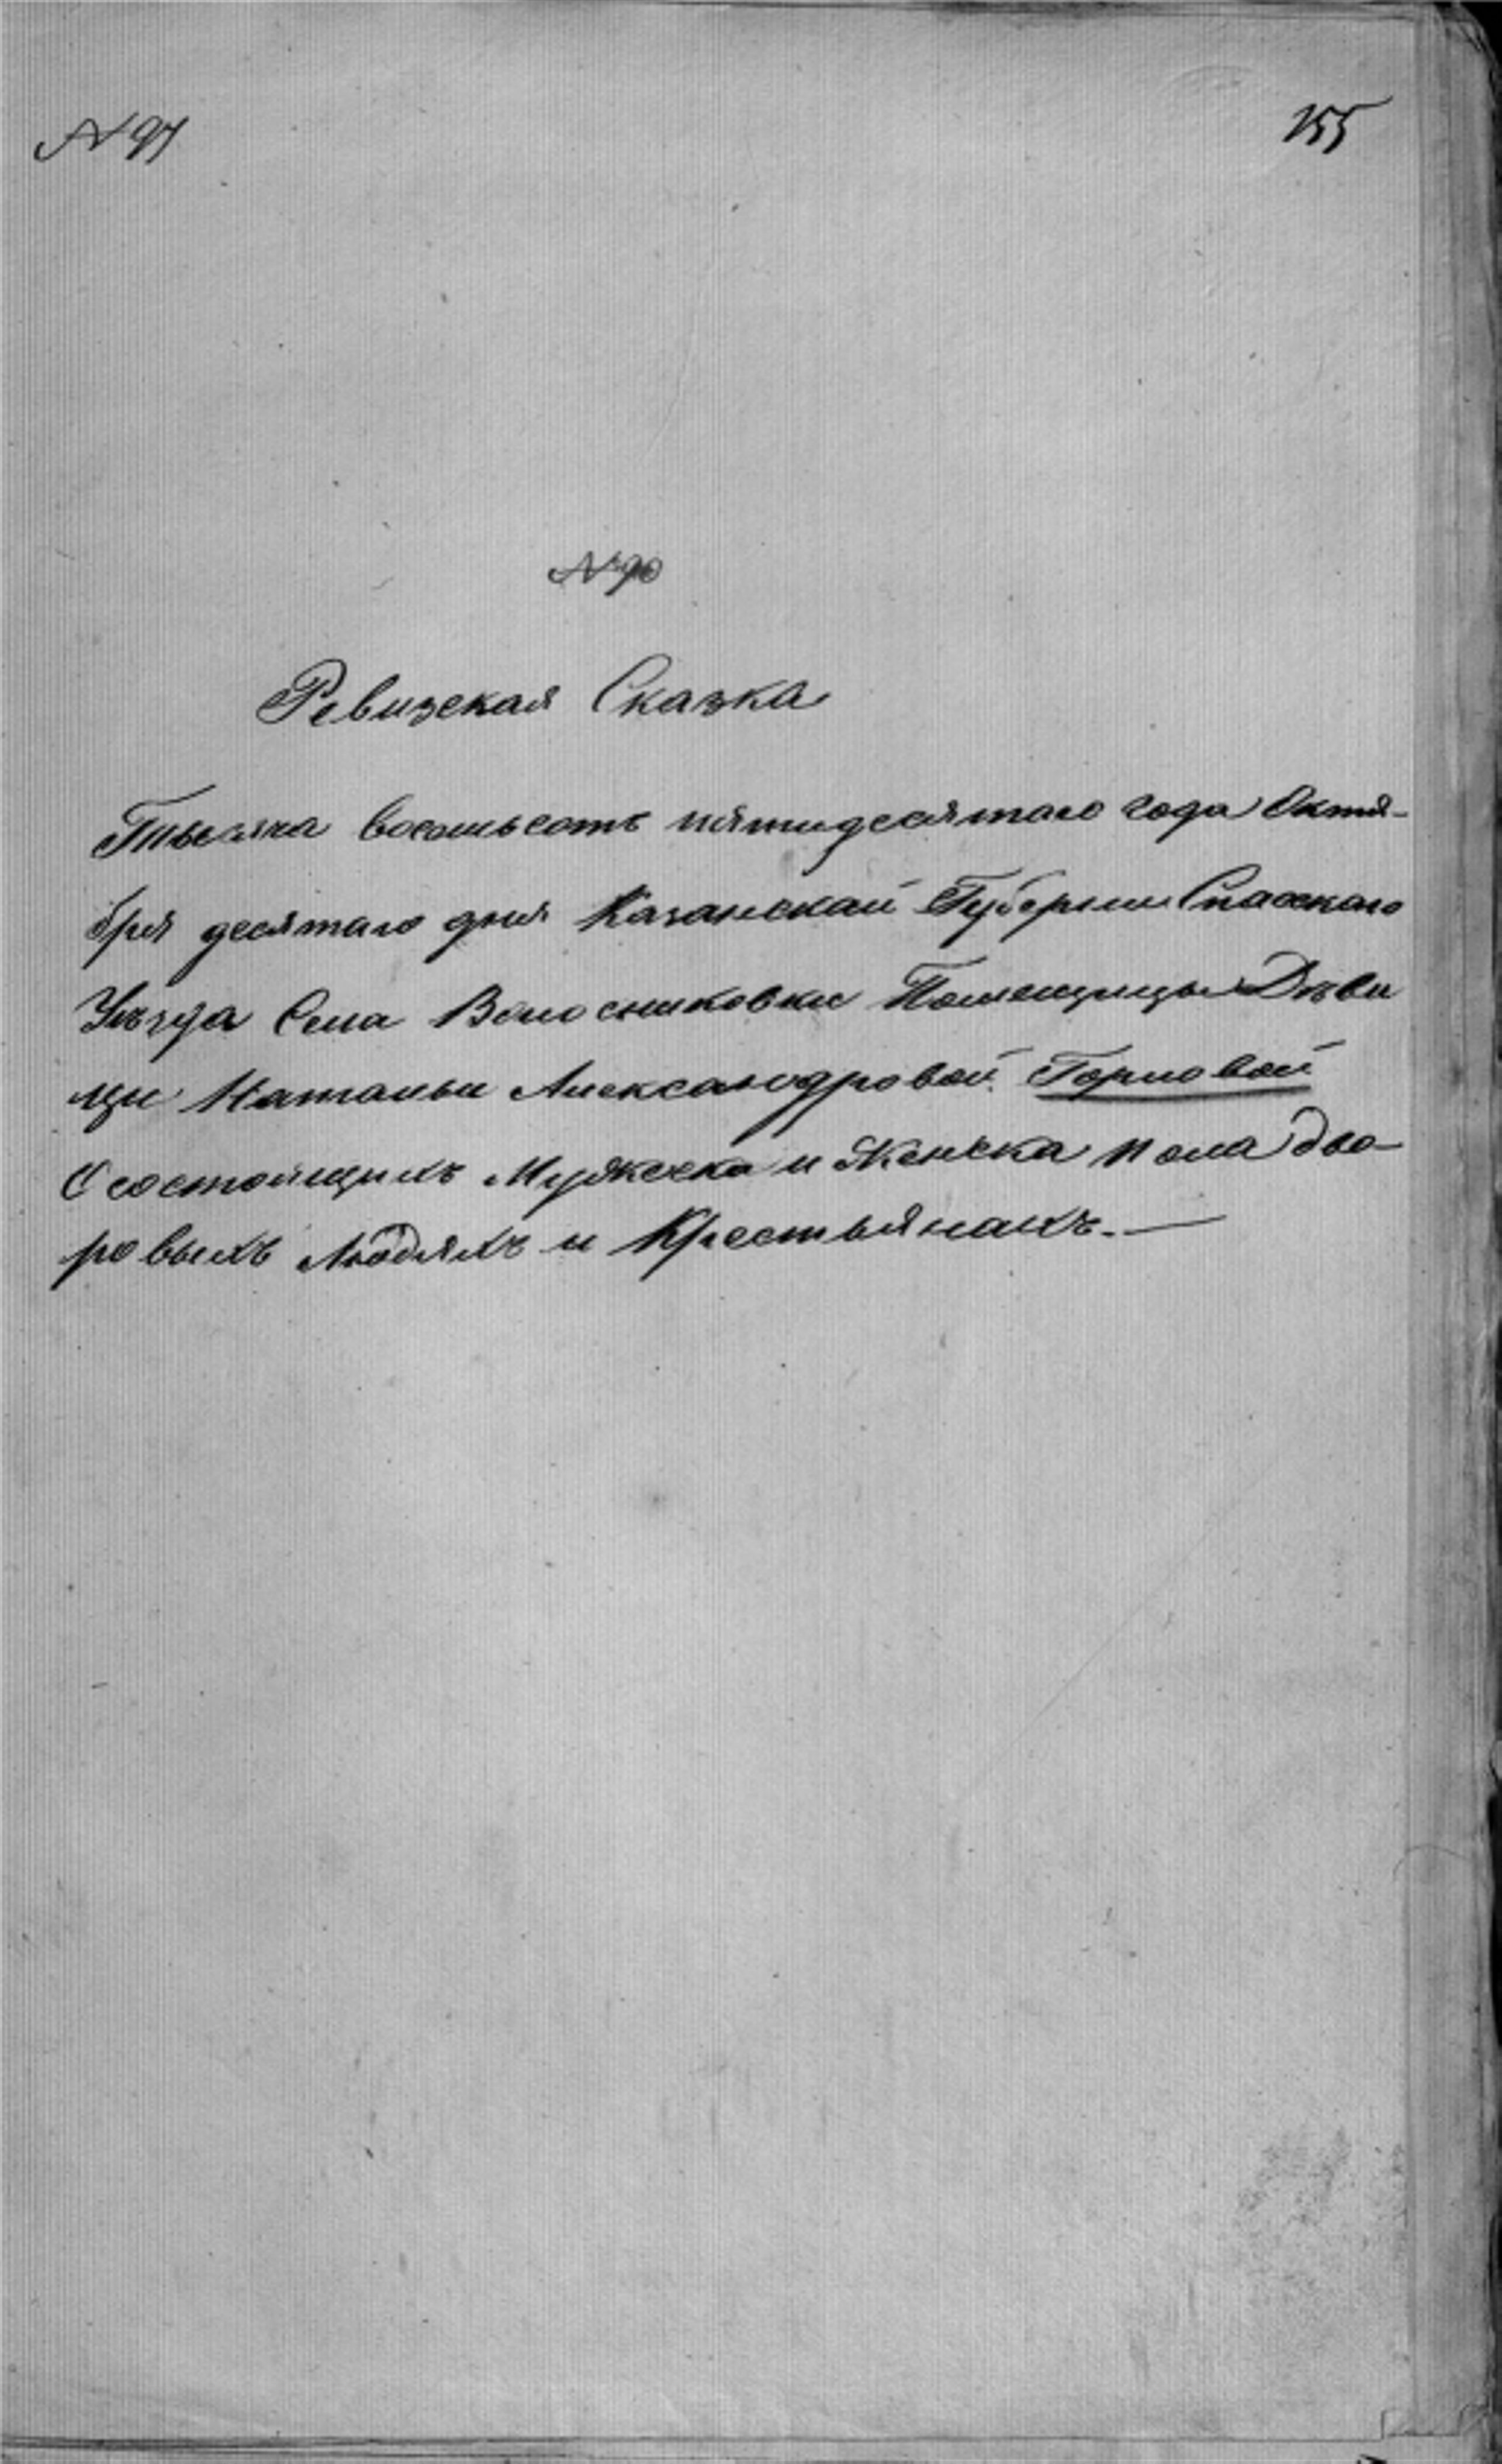 № 97
155
№ 90
Ревизская Сказка
Тысяча восемьсотъ пятидесятаго года Октя-
бря десятаго дня Казанской Губернии Спасскаго
Уѣзда Села Волосниковки Помещицы Дѣви
цы Натальи Александровой Горловой
О состоящихъ Мужеска и Женска пола дво-
ровыхъ Людяхъ и Крестьянахъ.—